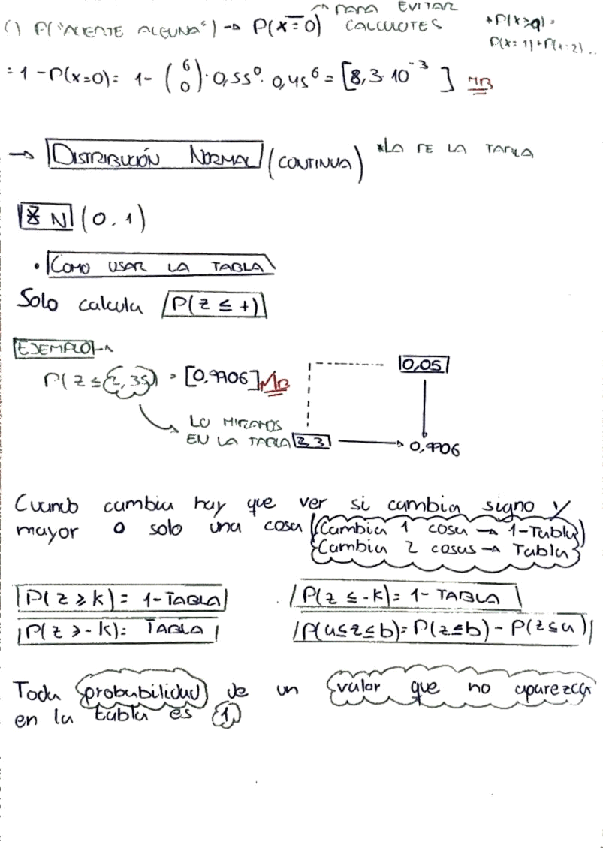 PARA EVITAR
C) P("ACIERTE ALGUNA") → P(x̅=0) CALCULOTES
*P(X>9)=
P(x=1)+P(x=2)...
= 1 - P(x=0) = 1 - (6 0) · 0,55⁰ · 0,45⁶ = [8,3·10⁻³]
→ DISTRIBUCIÓN NORMAL (CONTINUA) *LA DE LA TABLA
N (0,1)
• COMO USAR LA TABLA
Solo calcula P(z ≤ +)
EJEMPLO →
P(z ≤ 2,35) = [0,9906]
0,05
LO MIRAMOS
EN LA TABLA 2,3 → 0,9906
Cuando cambia hay que ver si cambia signo y
mayor o solo una cosa (Cambia 1 cosa → 1-Tabla)
Cambia 2 cosas → Tabla
P(z ≥ k) = 1-TABLA
P(z ≤ -k) = 1- TABLA
P(z ≥ -k): TABLA
P(a≤z≤b) = P(z≤b) - P(z≤a)
Toda probabilidad de un valor que no aparezca
en la tabla es 1